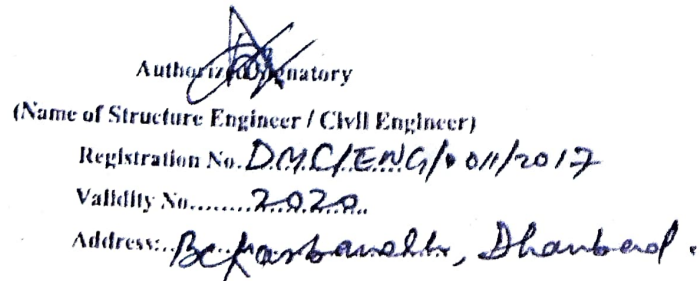 Authorized Signatory
(Name of Structure Engineer / Civil Engineer)
Registration No. DMC/ENG/0011/2017
Validity No........2020..
Address:.. Dhanbad.